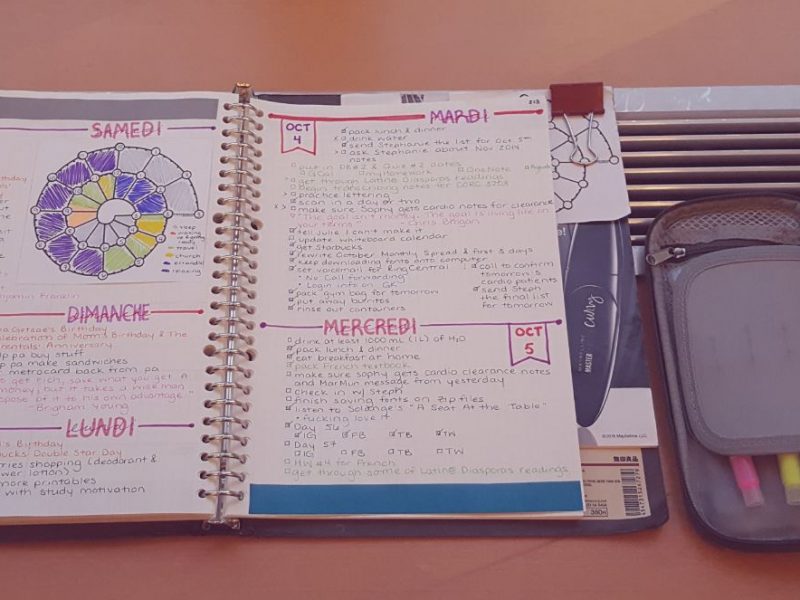 SAMEDI
sleep
travel
church
errands
relaxing
Benjamin Franklin
DIMANCHE
Birthday
celebration of Mom's Birthday & The
Anniversary
pa buy stuff
pa make sandwiches
metrocard back from pa
to get rich, save what you get. A
money, but it takes a wise man
dispose of it to his own advantage."
- Brigham Young
LUNDI
's Birthday
Double Star Day
shopping (deodorant &
lotion)
more printables
with study motivation
213
OCT
4
MARDI
pack lunch & dinner
drink water
send Stephanie the list for Oct 5th
ask Stephanie about Nov 2014
notes
put in DB#2 & Quiz #2 dates
GCal myHomework OneNote
get through Latin@ Diaspora readings
Begin transcribing notes for CORC 3203
practice lettering
scan in a day or two
make sure Sophy gets cardio notes for clearance
"The goal isn't money. The goal is living life on
your terms." - Chris Brogan
tell Julie I can't make it
update whiteboard calendar
get Starbucks
rewrite October Monthly Spread & first 3 days
keep downloading fonts onto computer
set voicemail for RingCentral
• No Call forwarding
• Login info on GE
pack gym bag for tomorrow
put away burritos
rinse out containers
call to confirm
tomorrow's
cardio patients
send Steph
the final list
for tomorrow
MERCREDI
OCT
5
drink at least 1000 mL (1L) of H2O
pack lunch & dinner
eat breakfast at home
pack French textbook
make sure sophy gets Cardio clearance notes
and MarMun message from yesterday
check in w/ Steph
finish saving fonts on zip files
listen to Solange's "A Seat At the Table"
• fucking love it
Day 56
IG FB TB TW
Day 57
IG FB TB TW
HW #4 for French
get through some of Latin@ Diaspora's readings
curvy
MASTER
Maybelline LLC
無印良品